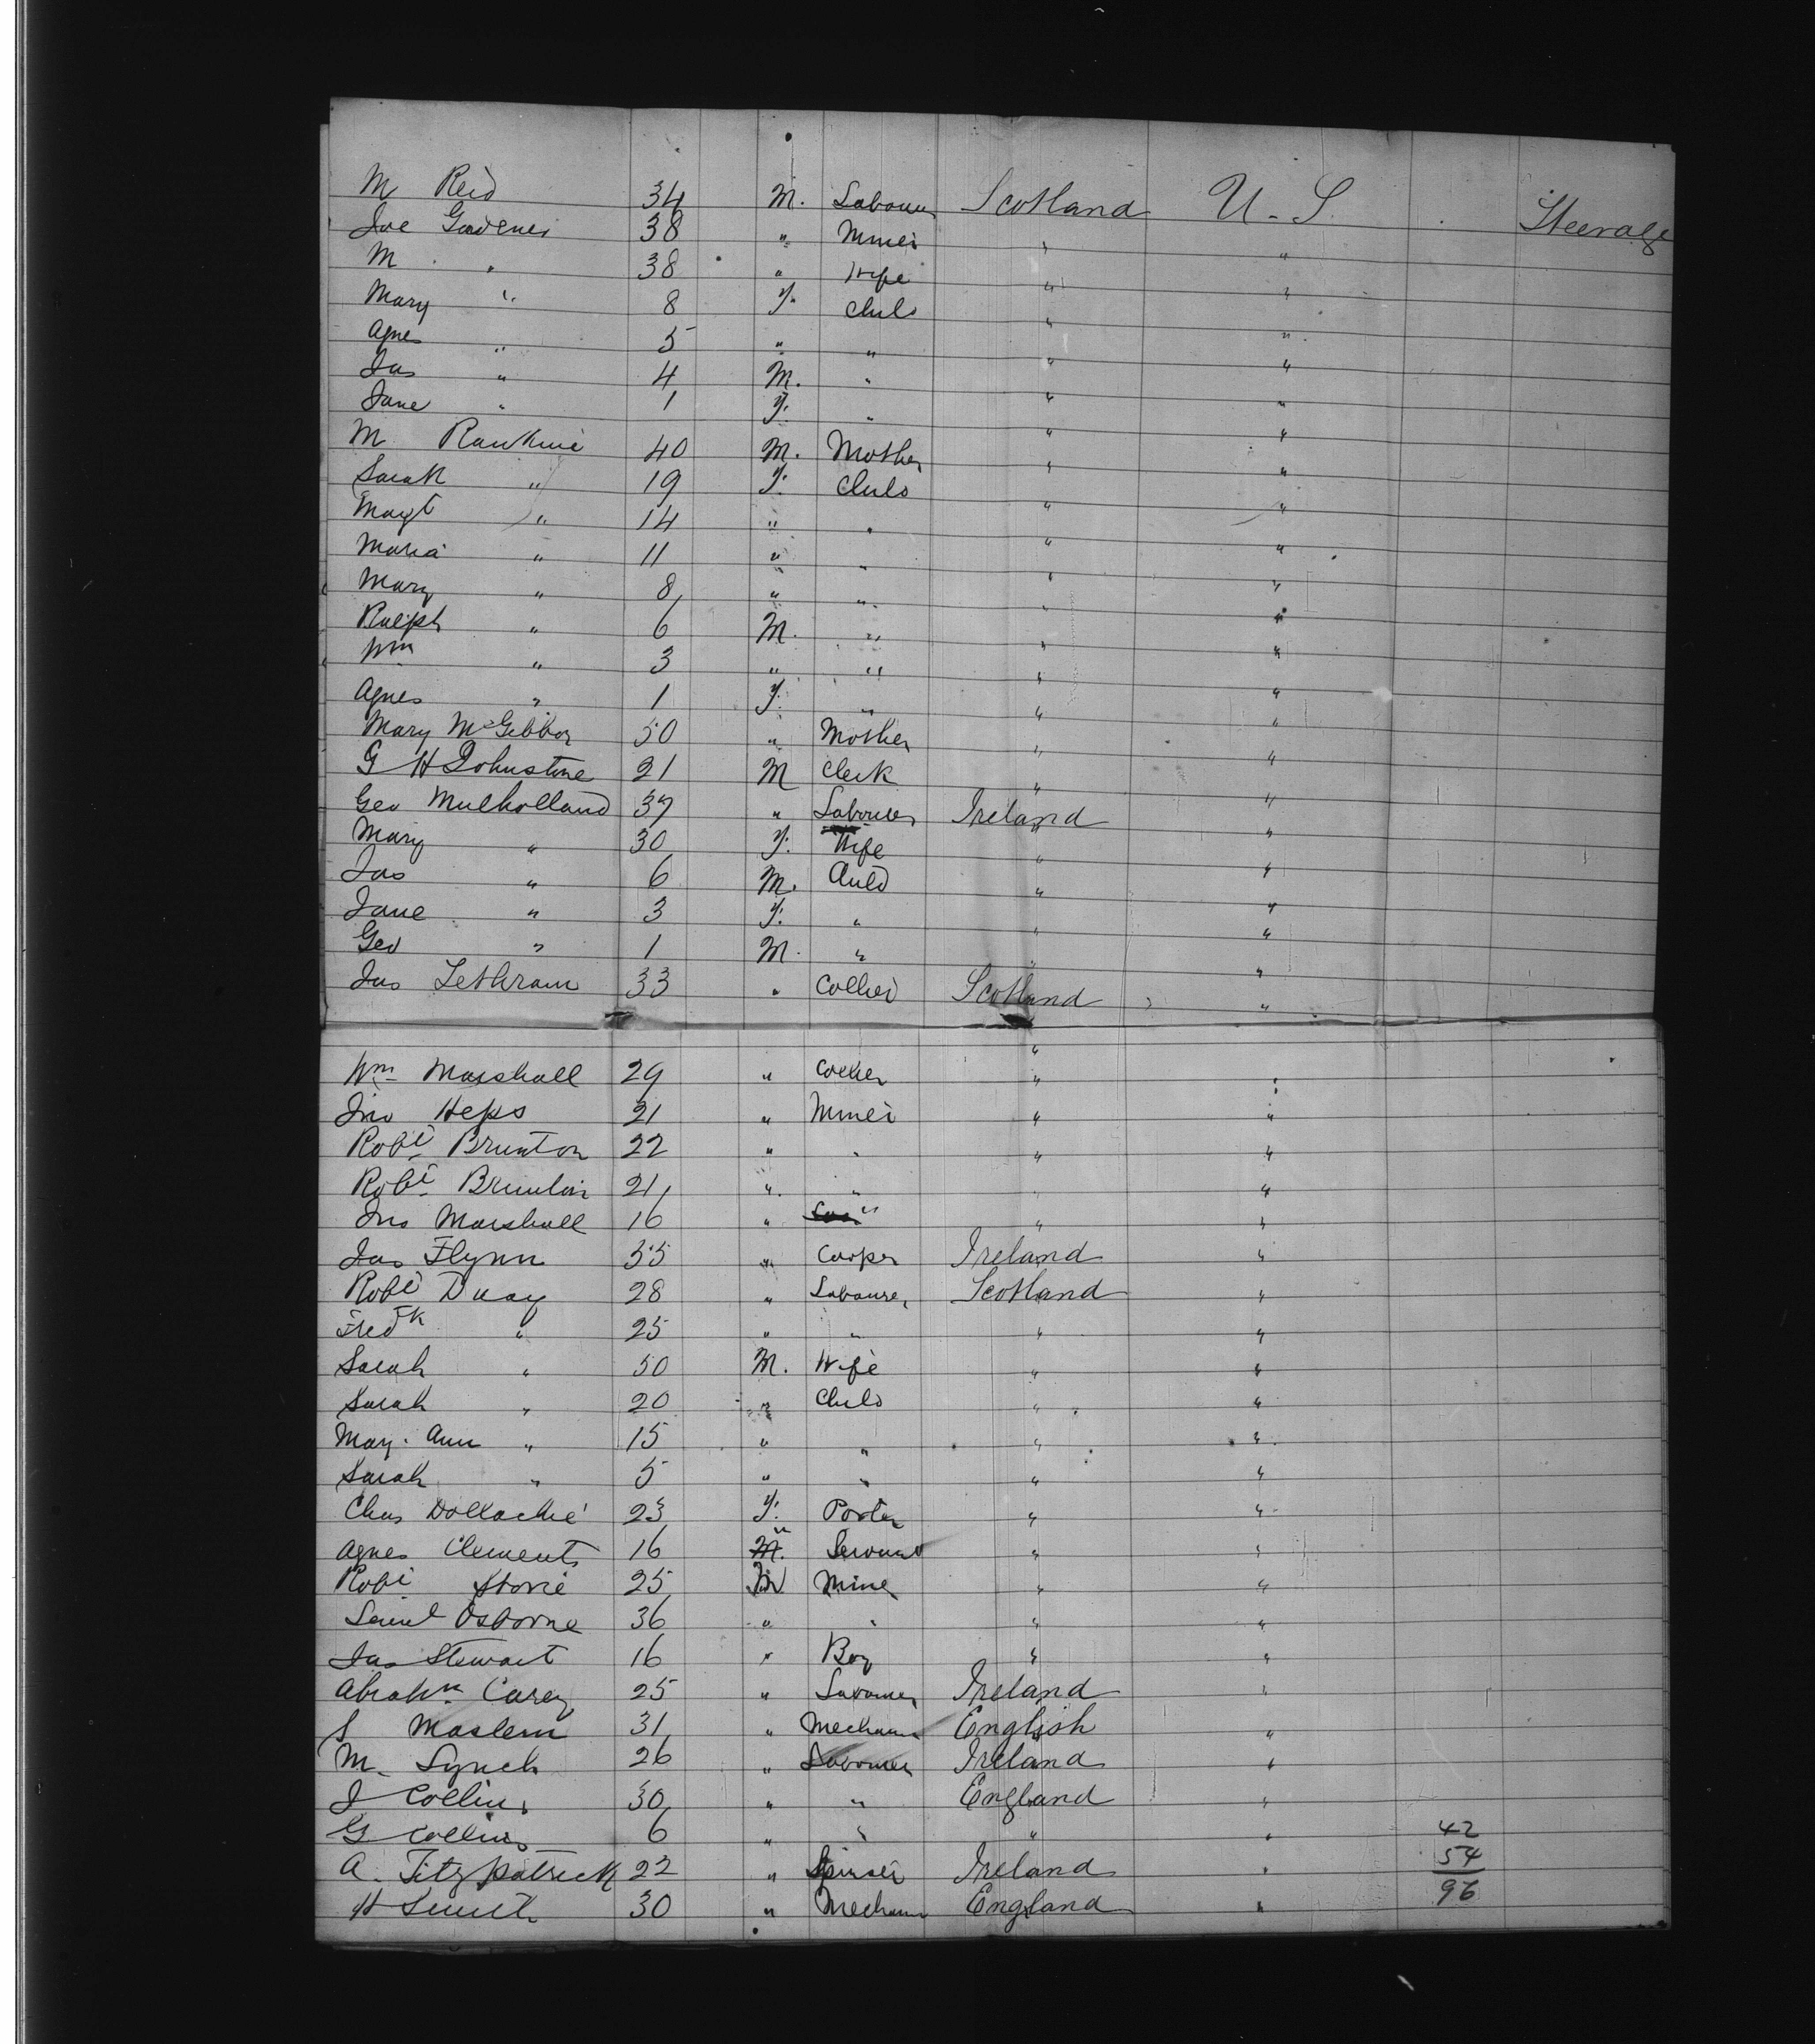 M Reid 34 M. Labourer Scotland U.S. Steerage
Joe Gardener 38 " Miner " "
M " 38 " Wife " "
Mary " 8 F. Child " "
Agnes " 5 " " " "
Jas " 4 M. " " "
Jane " 1 F. " " "
M Rankine 40 M. Mother " "
Sarah " 19 F. Child " "
Magt " 14 " " " "
Maria " 11 " " " "
Mary " 8 " " " "
Ralph " 6 M. " " "
Wm " 3 " " " "
Agnes " 1 F. " " "
Mary McGibbon 50 " Mother " "
G H Johnstone 21 M Clerk " "
Geo Mulholland 37 " Labourer Ireland "
Mary " 30 F. Wife " "
Jas " 6 M. Child " "
Jane " 3 F. " " "
Geo " 1 M. " " "
Jas Lethram 33 " Collier Scotland "
Wm Marshall 29 " Collier " "
Jno Heps 21 " Miner " "
Robt Brunton 22 " " " "
Robt 21 " " " "
Jno Marshall 16 " " " "
Jas Flynn 35 " Cooper Ireland "
Robt 28 " Labourer Scotland "
Fredk " 25 " " " "
Sarah " 50 M. Wife " "
Sarah " 20 " Child " "
Mary Ann " 15 " " " "
Sarah " 5 " " " "
Chas Dollachie 23 F. Porter " "
Agnes Clements 16 " Servant " "
Robt Storie 25 M Miner " "
Saml Osborne 36 " " " "
Jas Stewart 16 " Boy " "
Abrahm Carey 25 " Labourer Ireland "
S Maslem 31 " Mechanic English "
M. Lynch 26 " Labourer Ireland "
J Collins 30 " " England "
G Collins 6 " " " " 42
A. Fitzpatrick 22 " Spinster Ireland " 54
H Smith 30 " Mechanic England " 96